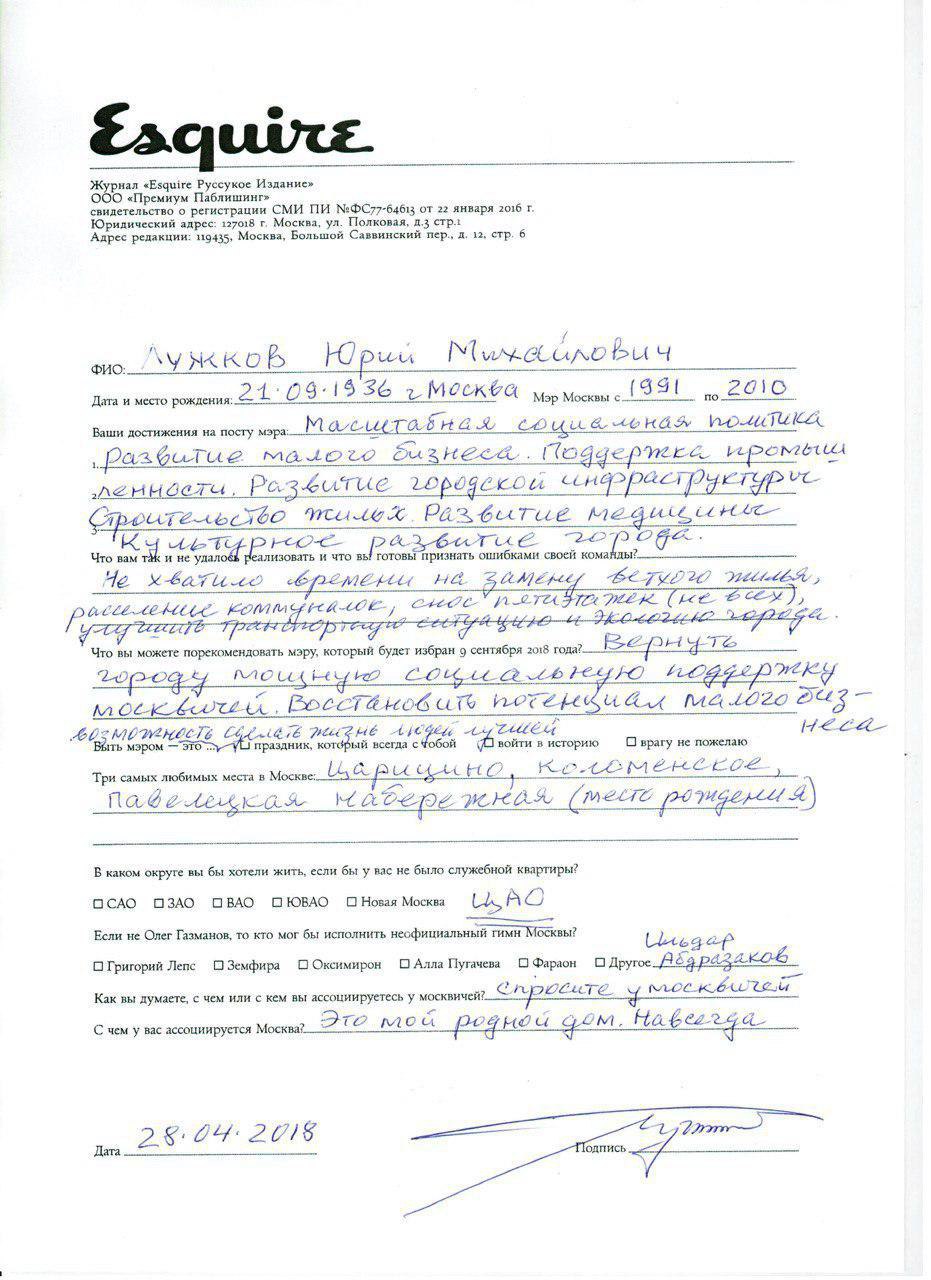 Esquire
Журнал «Esquire Руссукое Издание»
ООО «Премиум Паблишинг»
свидетельство о регистрации СМИ ПИ №ФС77-64613 от 22 января 2016 г.
Юридический адрес: 127018 г. Москва, ул. Полковая, д.3 стр.1
Адрес редакции: 119435, Москва, Большой Саввинский пер., д. 12, стр. 6
ФИО: Лужков Юрий Михайлович
Дата и место рождения: 21.09.1936 г Москва Мэр Москвы с 1991 по 2010
Ваши достижения на посту мэра: Масштабная социальная политика
1. Развитие малого бизнеса. Поддержка промыш
2. ленности. Развитие городской инфраструктуры
3. Строительство жилых. Развитие медицины
Культурное развитие города.
Что вам так и не удалось реализовать и что вы готовы признать ошибками своей команды?
Не хватило времени на замену ветхого жилья,
расселение коммуналок, снос пятиэтажек (не всех),
улучшить транспортную ситуацию и экологию города.
Что вы можете порекомендовать мэру, который будет избран 9 сентября 2018 года? Вернуть
городу мощную социальную поддержку
москвичей. Восстановить потенциал малого биз-
неса
возможность сделать жизнь людей лучшей
Быть мэром — это ... праздник, который всегда с тобой войти в историю врагу не пожелаю
Три самых любимых места в Москве: Царицино, Коломенское,
Павелецкая набережная (место рождения)
В каком округе вы бы хотели жить, если бы у вас не было служебной квартиры?
САО ЗАО ВАО ЮВАО Новая Москва ЦАО
Если не Олег Газманов, то кто мог бы исполнить неофициальный гимн Москвы?
Ильдар
Григорий Лепс Земфира Оксимирон Алла Пугачева Фараон Другое Абдразаков
Как вы думаете, с чем или с кем вы ассоциируетесь у москвичей? Спросите у москвичей
С чем у вас ассоциируется Москва? Это мой родной дом. Навсегда
Дата 28.04.2018 Подпись